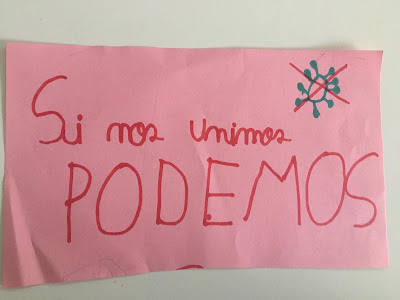 Si nos unimos
PODEMOS